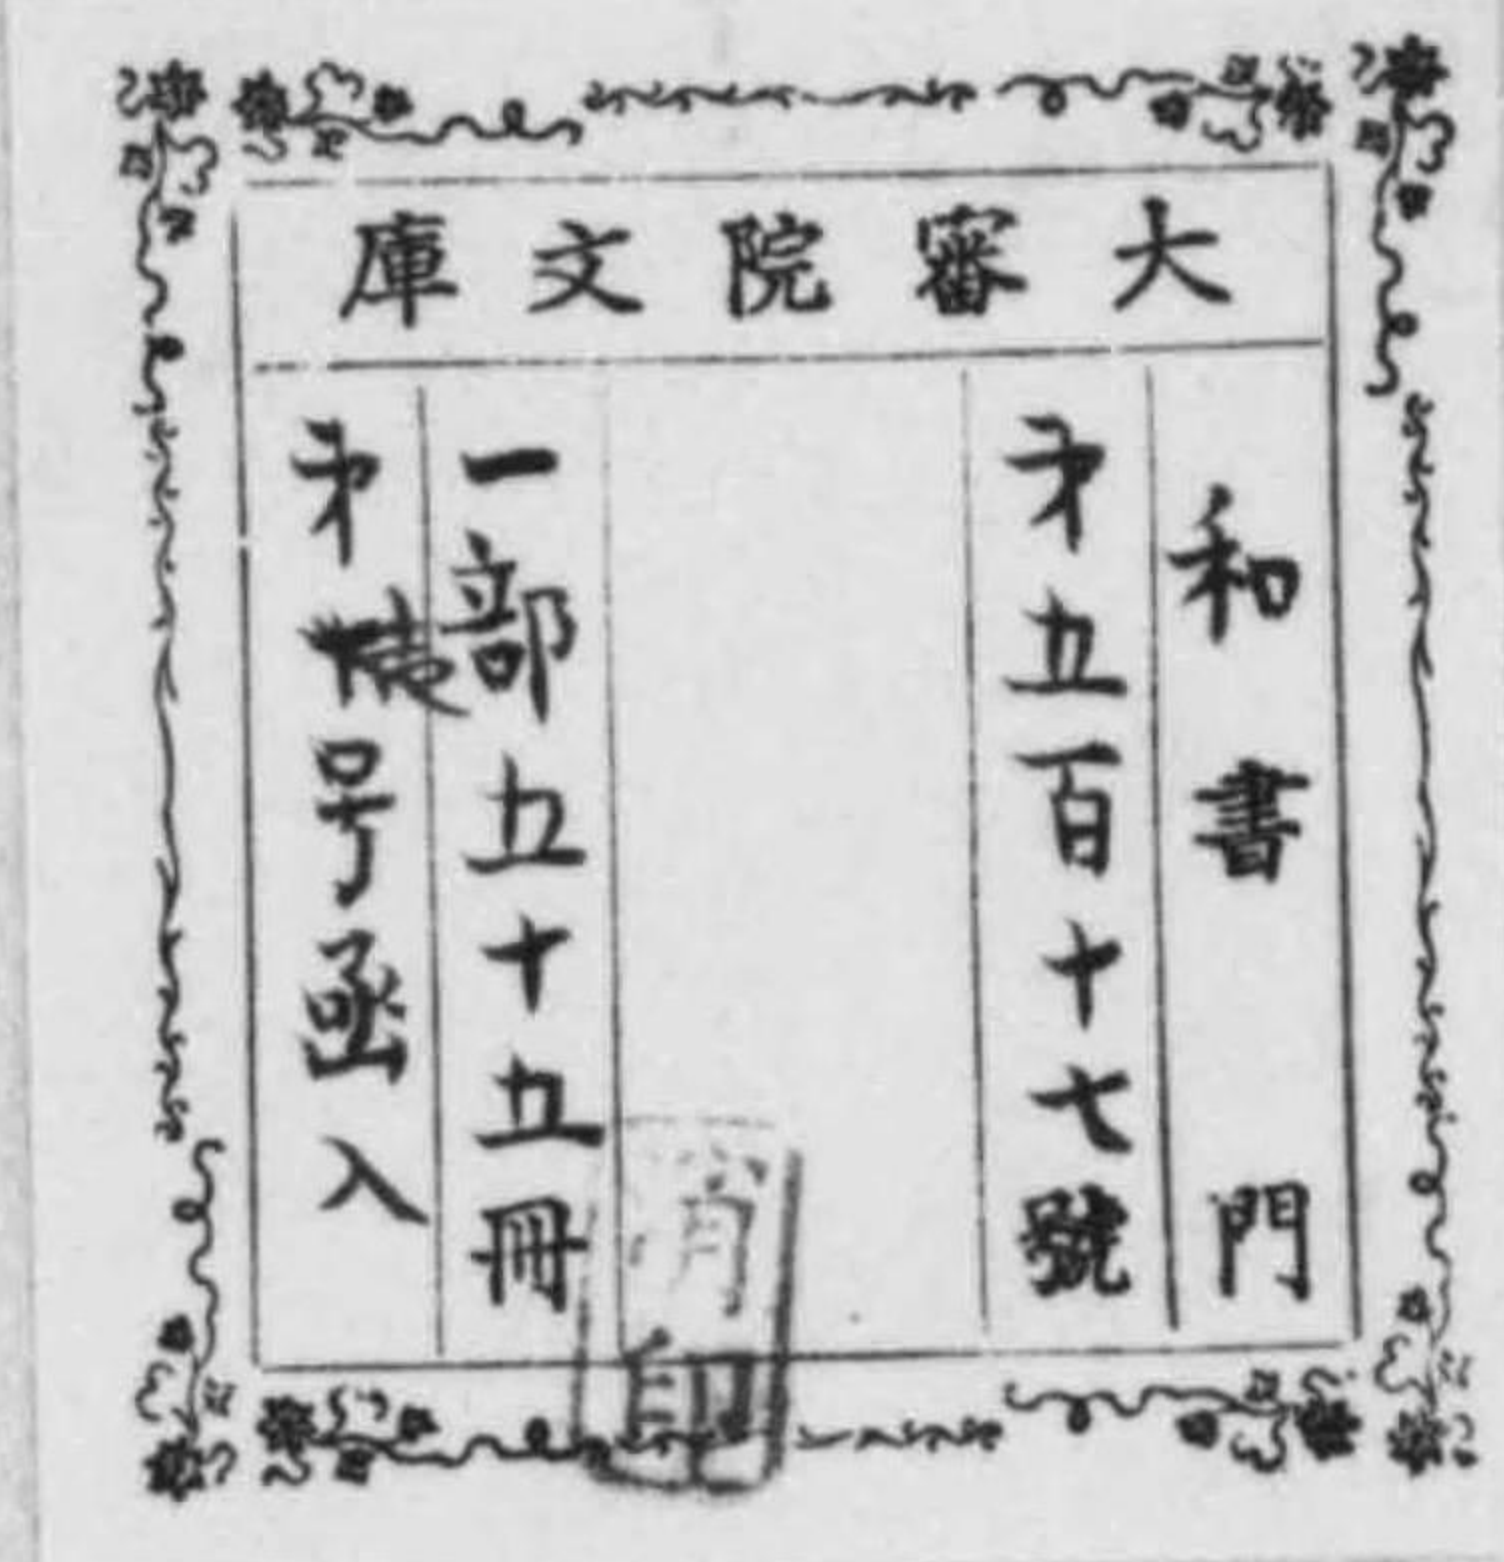 大審院文庫
和書門
㐧五百十七號
一部五十五冊
㐧号函入
消印